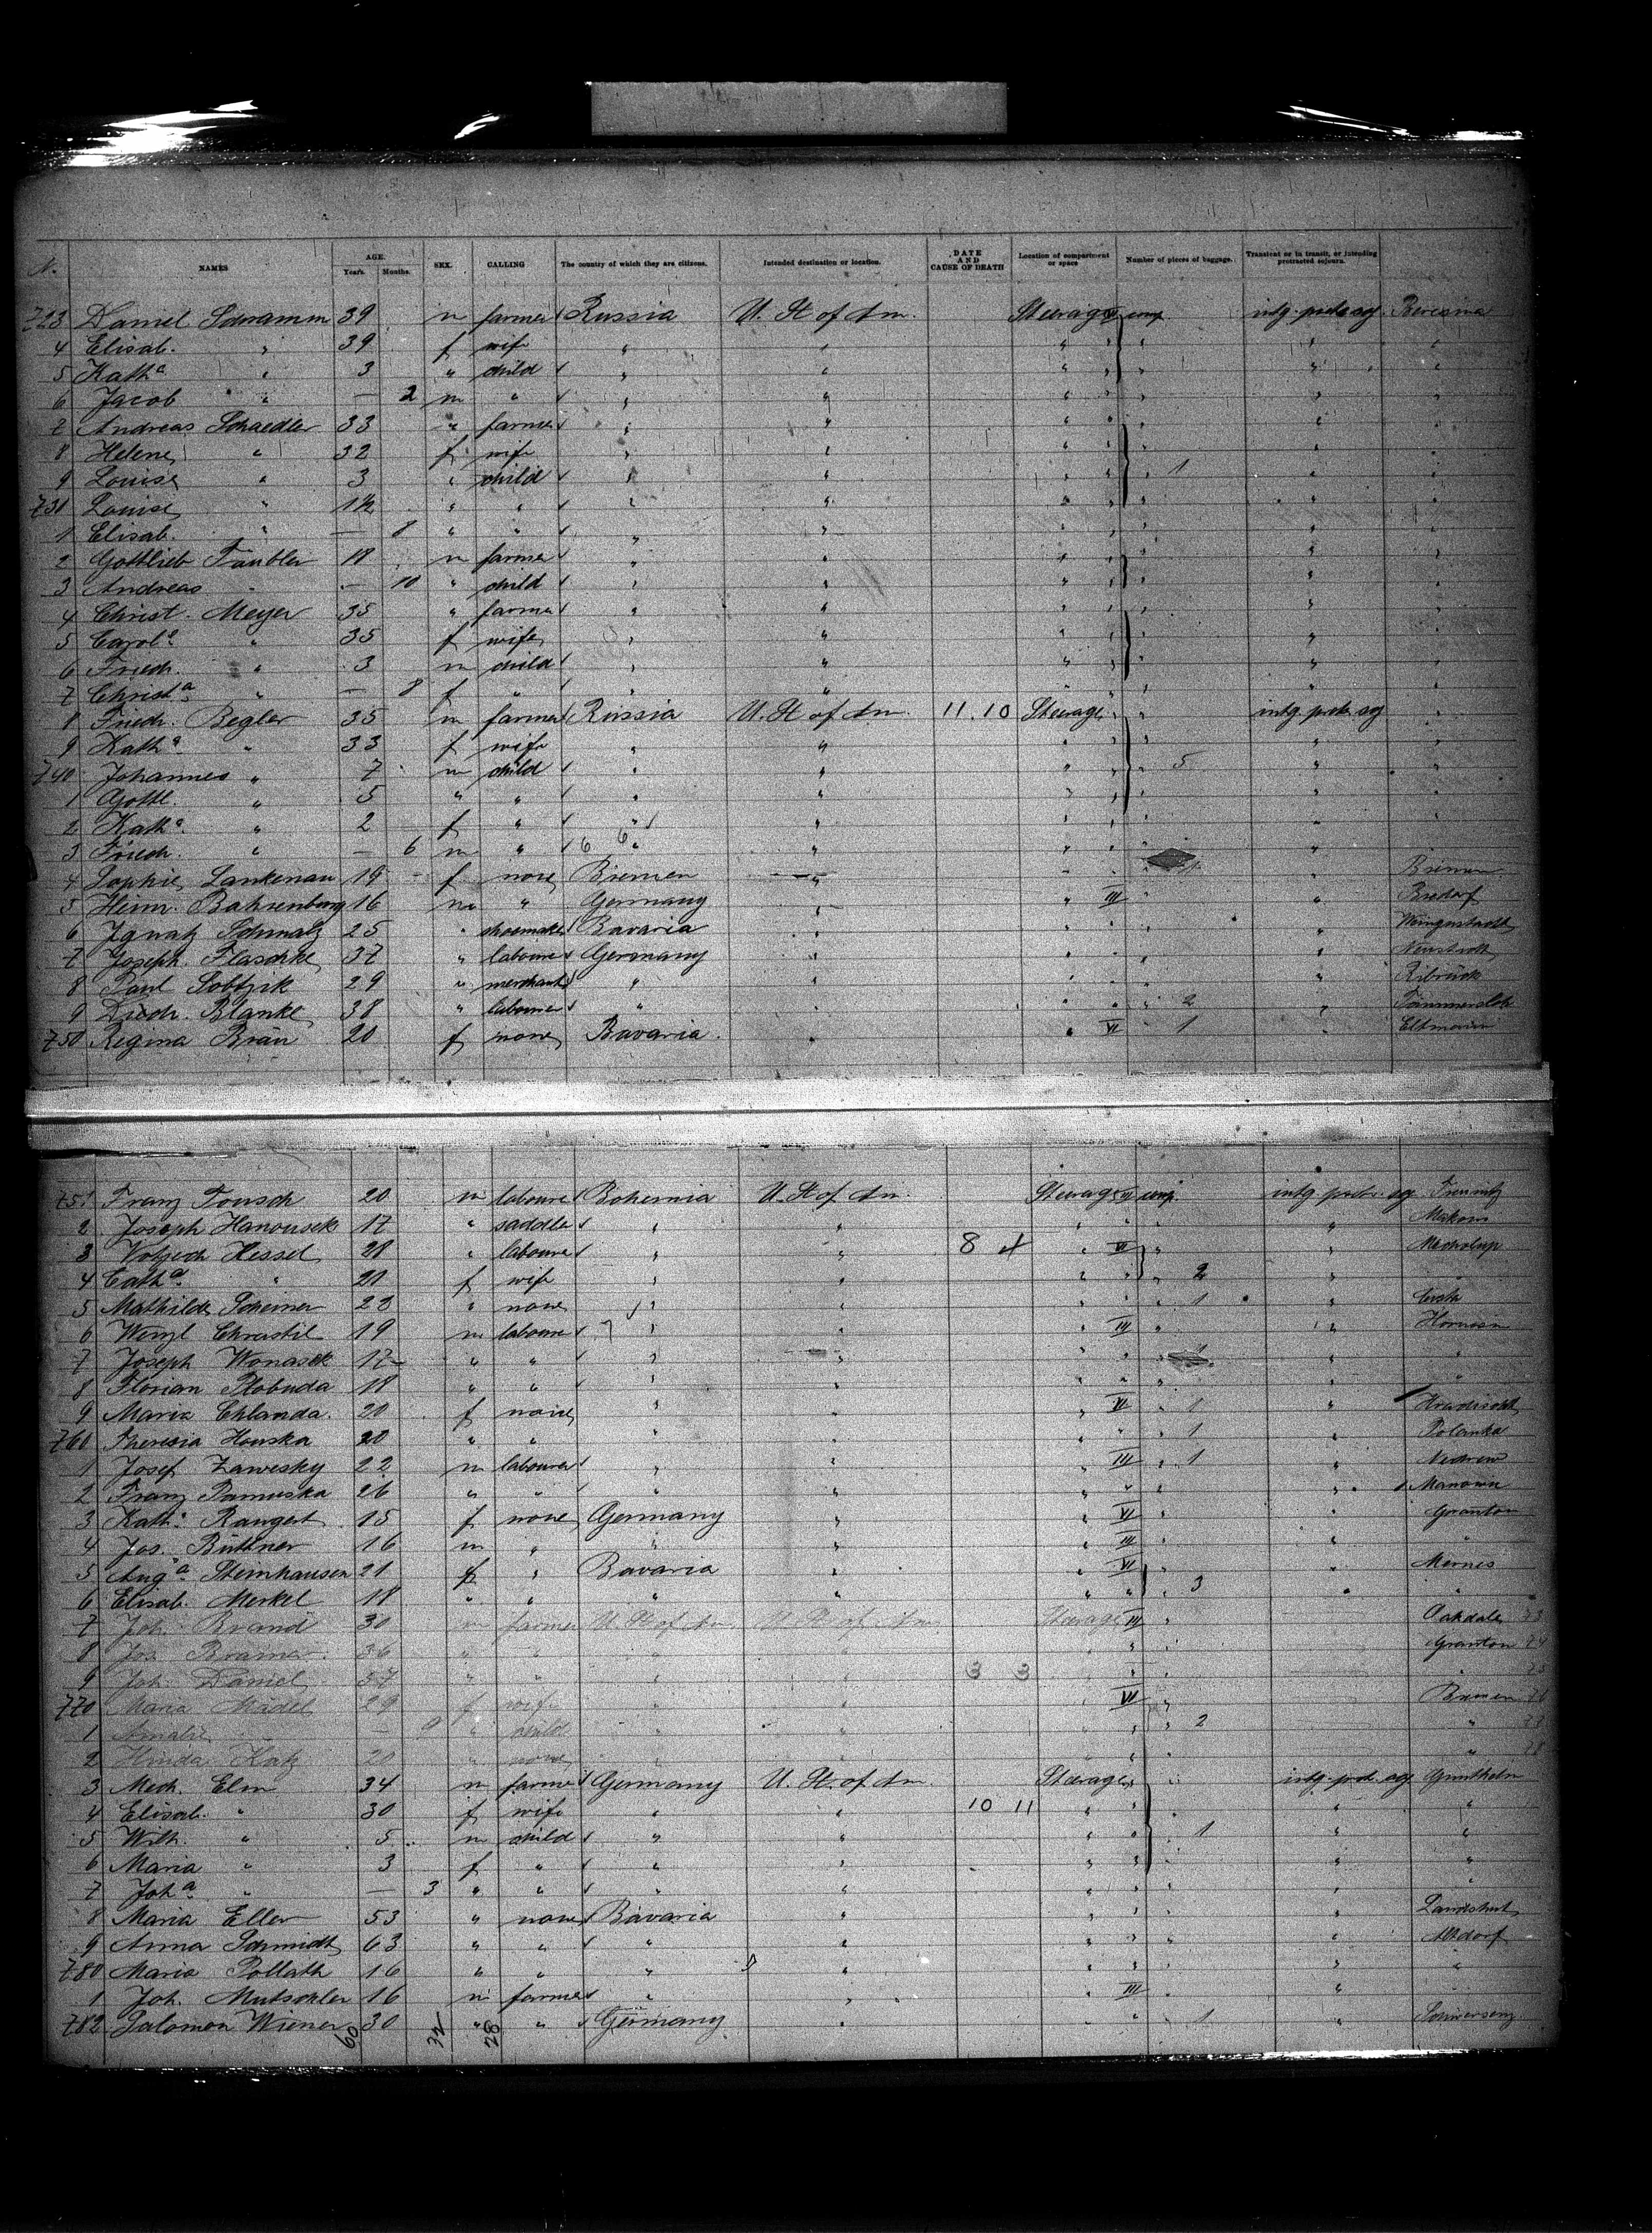 N. NAMES AGE. Years. Months. SEX. CALLING The country of which they are citizens. Intended destination or location. DATE AND CAUSE OF DEATH Location of compartment or space Number of pieces of baggage. Transient or in transit, or intending protracted sojourn.
723 Daniel Schramm 39 m farmer Russia U. St of Am. Steerage intg. protr. sog Beresina
4 Elisab. " 39 f wife " "
5 Kath.a " 3 " child " "
6 Jacob " — 2 m " " "
7 Andreas Schaedler 33 " farmer " "
8 Helene " 32 f wife " "
9 Louise " 3 " child " " 1
731 Louise " 1½ " " " "
1 Elisab. " — 8 " " " "
2 Gottlieb Faubler 18 m farmer " "
3 Andreas " — 10 " child " "
4 Christ. Meyer 35 " farmer " "
5 Carol.a " 35 f wife " "
6 Friedr. " 3 m child " "
7 Christ.a " — 8 f " " "
8 Friedr. Begler 35 m farmer Russia U. St of Am. 11.10 Steerage intg. protr. sog
9 Kath.a " 33 f wife " "
740 Johannes " 7 m child " " 5
1 Gottl. " 5 " " " "
2 Kath.a " 2 f " " "
3 Friedr. " — 6 m " 6 6 " "
4 Sophie Lankenau 19 f none Bremen " Bremen
5 Heinr. Bahrenburg 16 m " Germany " III Bredorf
6 Ignatz Schmalz 25 " shoemaker Bavaria "
7 Joseph Flaschke 37 " labourer Germany " Neustadt
8 Paul Sobtzik 29 " merchant " "
9 Diedr. Blanke 38 " labourer " " 2
750 Regina Bräu 20 f none Bavaria " VI 1 Eltmann
751 Franz Tousch 20 m labourer Bohemia U. St of Am. Steerage intg. protr. sog
2 Joseph Hanousek 17 " saddler " "
3 Hessel 28 " labourer " " 8 VI
4 Cath.a " 21 f wife " " 2
5 Mathilde 23 " none " " 1
6 Wenzl Chrastil 19 m labourer 7 " " III
7 Joseph Wonasek 17 " " " "
8 Florian Slobuda 18 " " " "
9 Maria Chlanda 20 f none " " VI 1 Hradischt
760 Theresia Houska 20 " " " " 1 Polanka
1 Josef Zawesky 22 m labourer " " III 1
2 Franz Pamuska 26 " " " "
3 Kath.a Rangert 15 f none Germany " VI Granton
4 Jos. Büttner 16 m " " " III "
5 Aug.a Steinhauser 21 f " Bavaria " VI Mernes
6 Elisab. Merkel 18 " " " " 3 "
7 Joh. Brand 30 m farmer U. St of Am. U. St of Am. Steerage III Oakdale
8 Jos. Brama 36 " " " " Granton
9 Joh. Daniel 57 " " " " 3 3 "
770 Maria Mädel 29 f wife " " VI Bremen
1 Amalie — 9 " child " " 2 "
2 Hinda Katz 20 " none " " "
3 Mich. Elm 34 m farmer Germany U. St. of Am. Steerage intg. prot. sog
4 Elisab. " 30 f wife " " 10 11
5 Wilh. " 5 m child " " 1
6 Maria " 3 f " " "
7 Joh.a " — 3 " " " "
8 Maria Eller 53 " none Bavaria " Landshut
9 Anna Schmidt 63 " " " " Altdorf
780 Maria Pollath 16 " " " " "
1 Joh. Mutschler 16 m farmer " " III
782 Salomon Wiener 30 " " Germany " 1 Schwersenz
60 32 28